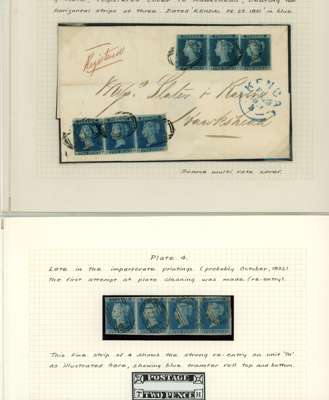 horizontal strips of three. Dated KENDAL FE.25.1851 in blue.
Registered
Slater &
Hawkshead
KENDAL
Scarce multi rate cover.
Plate 4.
Late in the imperforate printings (probably October, 1852)
the first attempt at plate cleaning was made (re-entry).
This fine strip of 4 shows the strong re-entry on unit
as illustrated here, showing blue transfer roll top and bottom.
POSTAGE
TWO PENCE